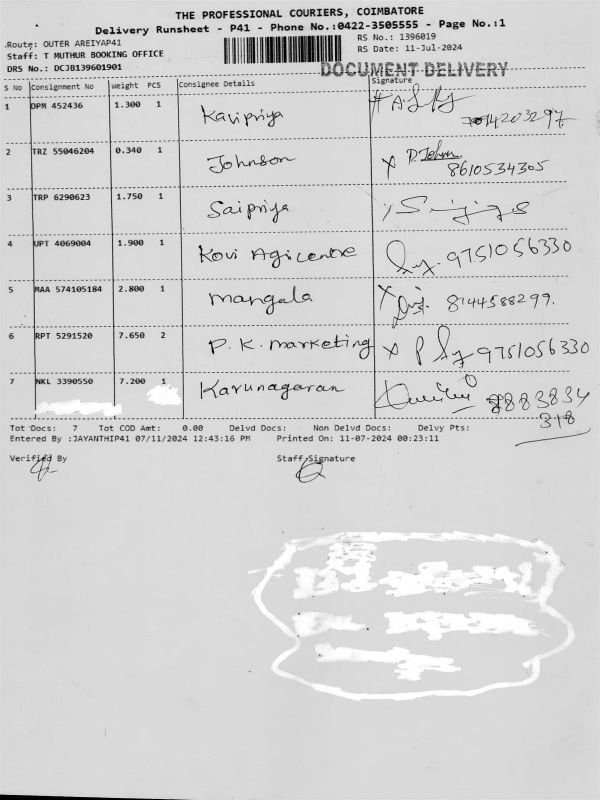 THE PROFESSIONAL COURIERS, COIMBATORE
Delivery Runsheet - P41 - Phone No.:0422-3505555 - Page No.:1
Route: OUTER AREIYAP41
RS No.: 1396019
Staff: T MUTHUR BOOKING OFFICE
RS Date: 11-Jul-2024
DRS No.: DCJB139601901
DOCUMENT DELIVERY
S No Consignment No Weight PCS Consignee Details Signature
1 DPM 452436 1.300 1 Kavipriya
2 TRZ 55046204 0.340 1 Johnson X 8610534305
3 TRP 6290623 1.750 1 Saipriya
4 UPT 4069004 1.900 1 Kovi Agicentre 9751056330
5 MAA 574105184 2.800 1 mangala X 8144588299.
6 RPT 5291520 7.650 2 P.K. marketing X 9751056330
7 NKL 3390550 7.200 1 Karunagaran 8883834
318
Tot Docs: 7 Tot COD Amt: 0.00 Delvd Docs: Non Delvd Docs: Delvy Pts:
Entered By :JAYANTHIP41 07/11/2024 12:43:16 PM Printed On: 11-07-2024 00:23:11
Verified By Staff Signature